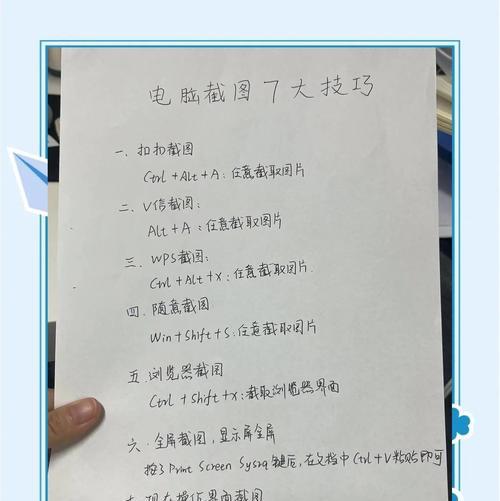 电脑截图7大技巧
一、扣扣截图
Ctrl+Alt+A:任意截取图片
二、V信截图:
Alt+A:任意截取图片
三、WPS截图:
Ctrl+Alt+X:任意截取图片.
四、随意截图
Win+Shift+S:任意截取图片
五.浏览器截图
Ctrl+Shift+X:截取浏览器界面
六、全屏截图,显示屏全屏
按了Print Screen Sysrq键后,在文档中Ctrl+V粘贴即可
界面截图